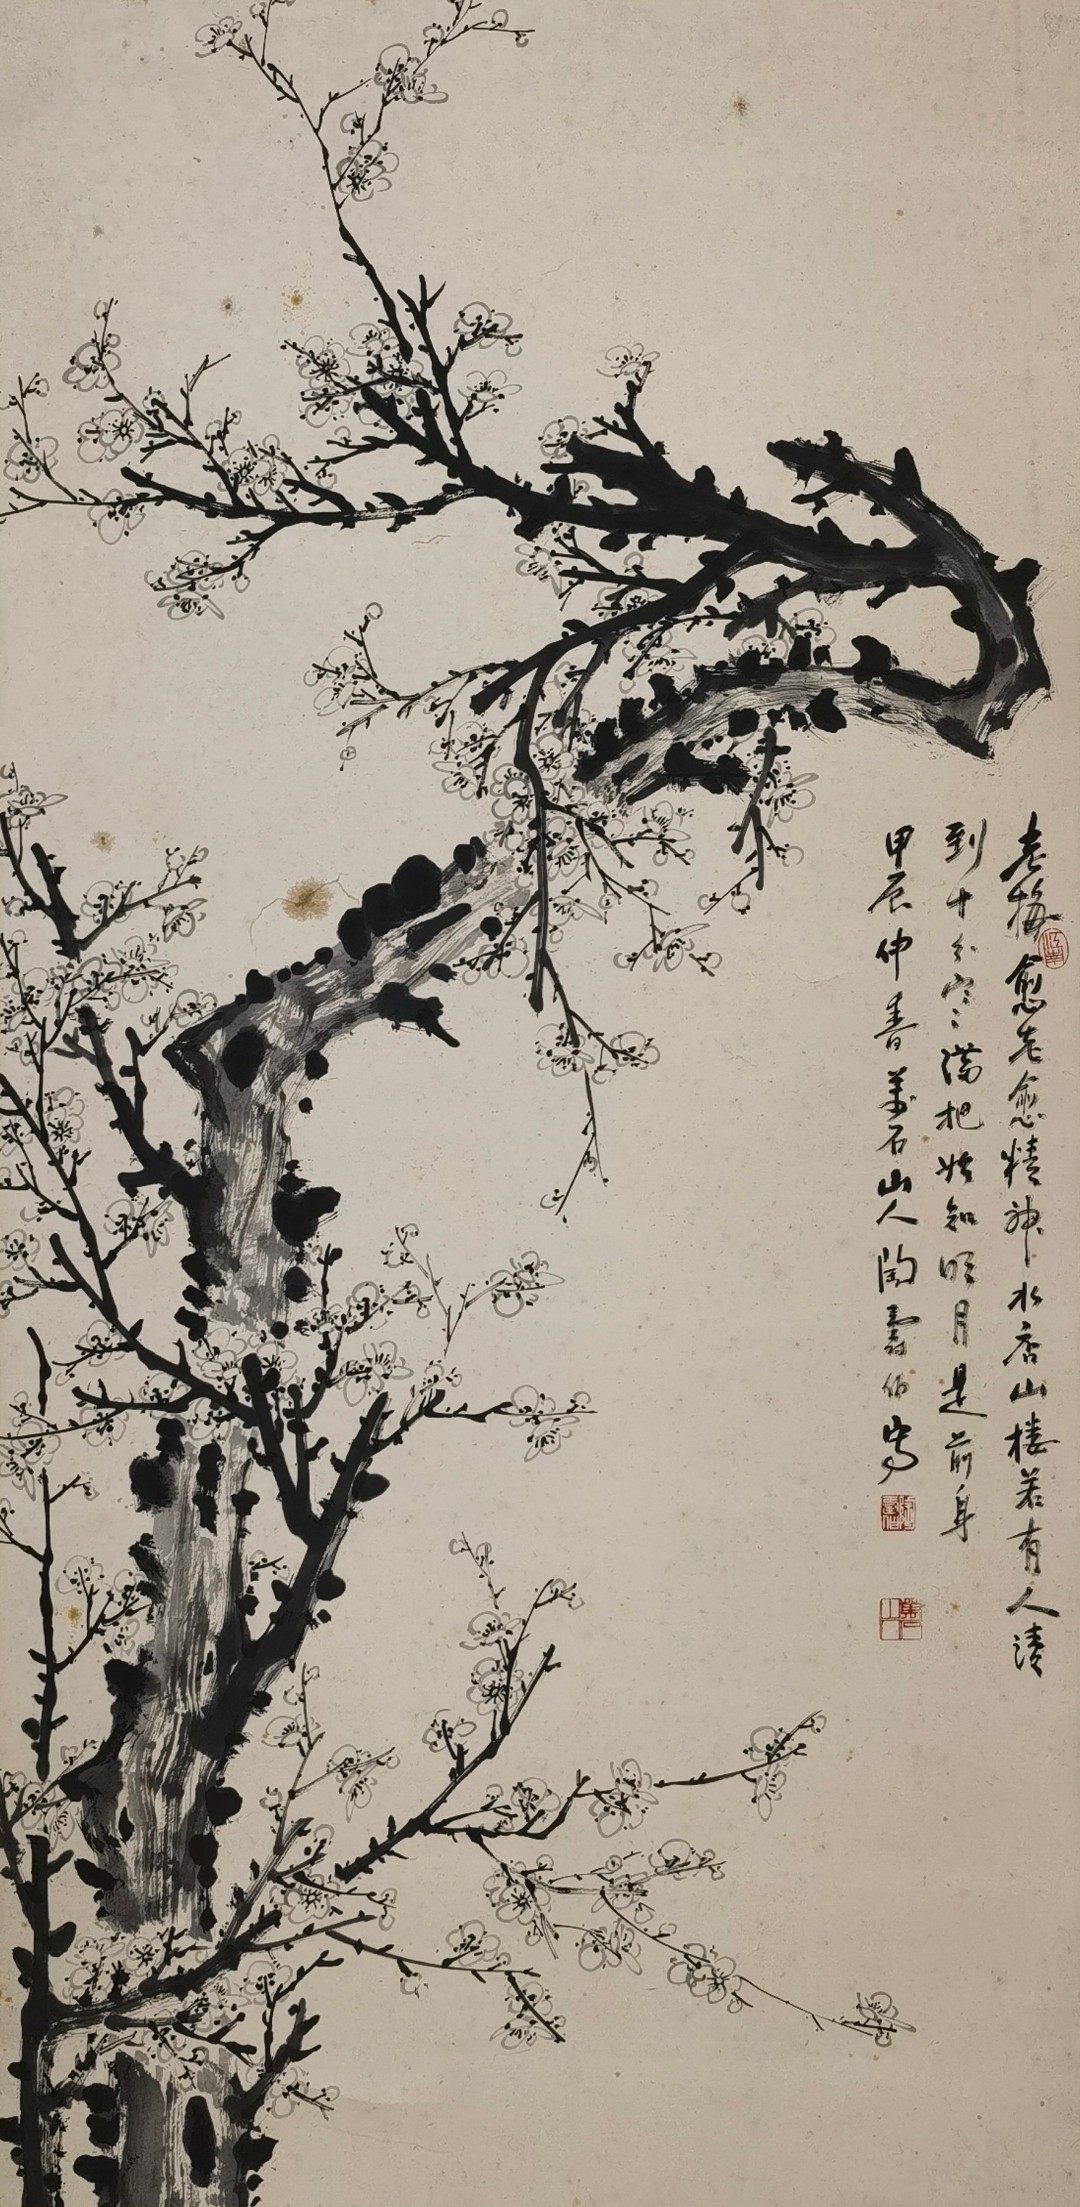 老梅愈老愈精神水店山楼若有人清
到十分寒满把始知明月是前身
甲辰仲春萬石山人陶壽伯寫